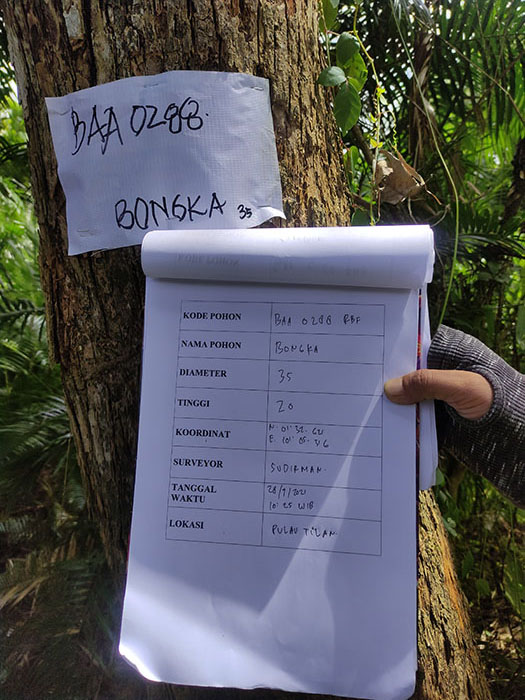 BAA 0288.
BONGKA 35
KODE POHON BAA 0288 RBF
NAMA POHON BONGKA
DIAMETER 35
TINGGI 20
KOORDINAT N: 01° 32.
E: 101° 05.
SURVEYOR SUDIRMAN.
TANGGAL 28/9/2021
WAKTU 10:25 WIB
LOKASI PULAU TILAN